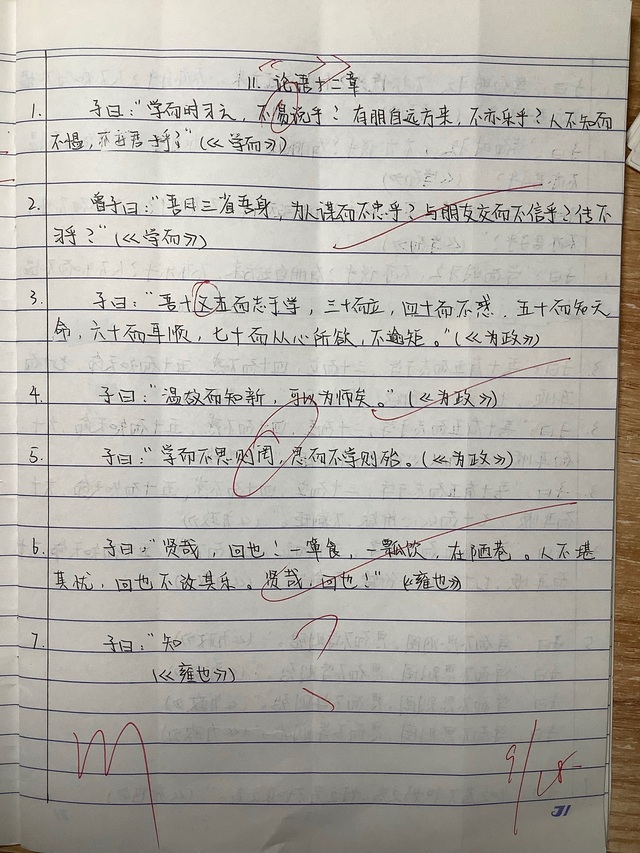 11. 论语十二章
1. 子曰:“学而时习之,不易说乎?有朋自远方来,不亦乐乎?人不知而
不愠,不亦君子乎?”(《学而》)
2. 曾子曰:“吾日三省吾身,为人谋而不忠乎?与朋友交而不信乎?传不
习乎?”(《学而》)
3. 子曰:“吾十又五而志于学,三十而立,四十而不惑,五十而知天
命,六十而耳顺,七十而从心所欲,不逾矩。”(《为政》)
4. 子曰:“温故而知新,可以为师矣。”(《为政》)
5. 子曰:“学而不思则罔,思而不学则殆。(《为政》)
6. 子曰:“贤哉,回也!一箪食,一瓢饮,在陋巷。人不堪
其忧,回也不改其乐。贤哉,回也!”《雍也》
7. 子曰:“知
(《雍也》)
9/15